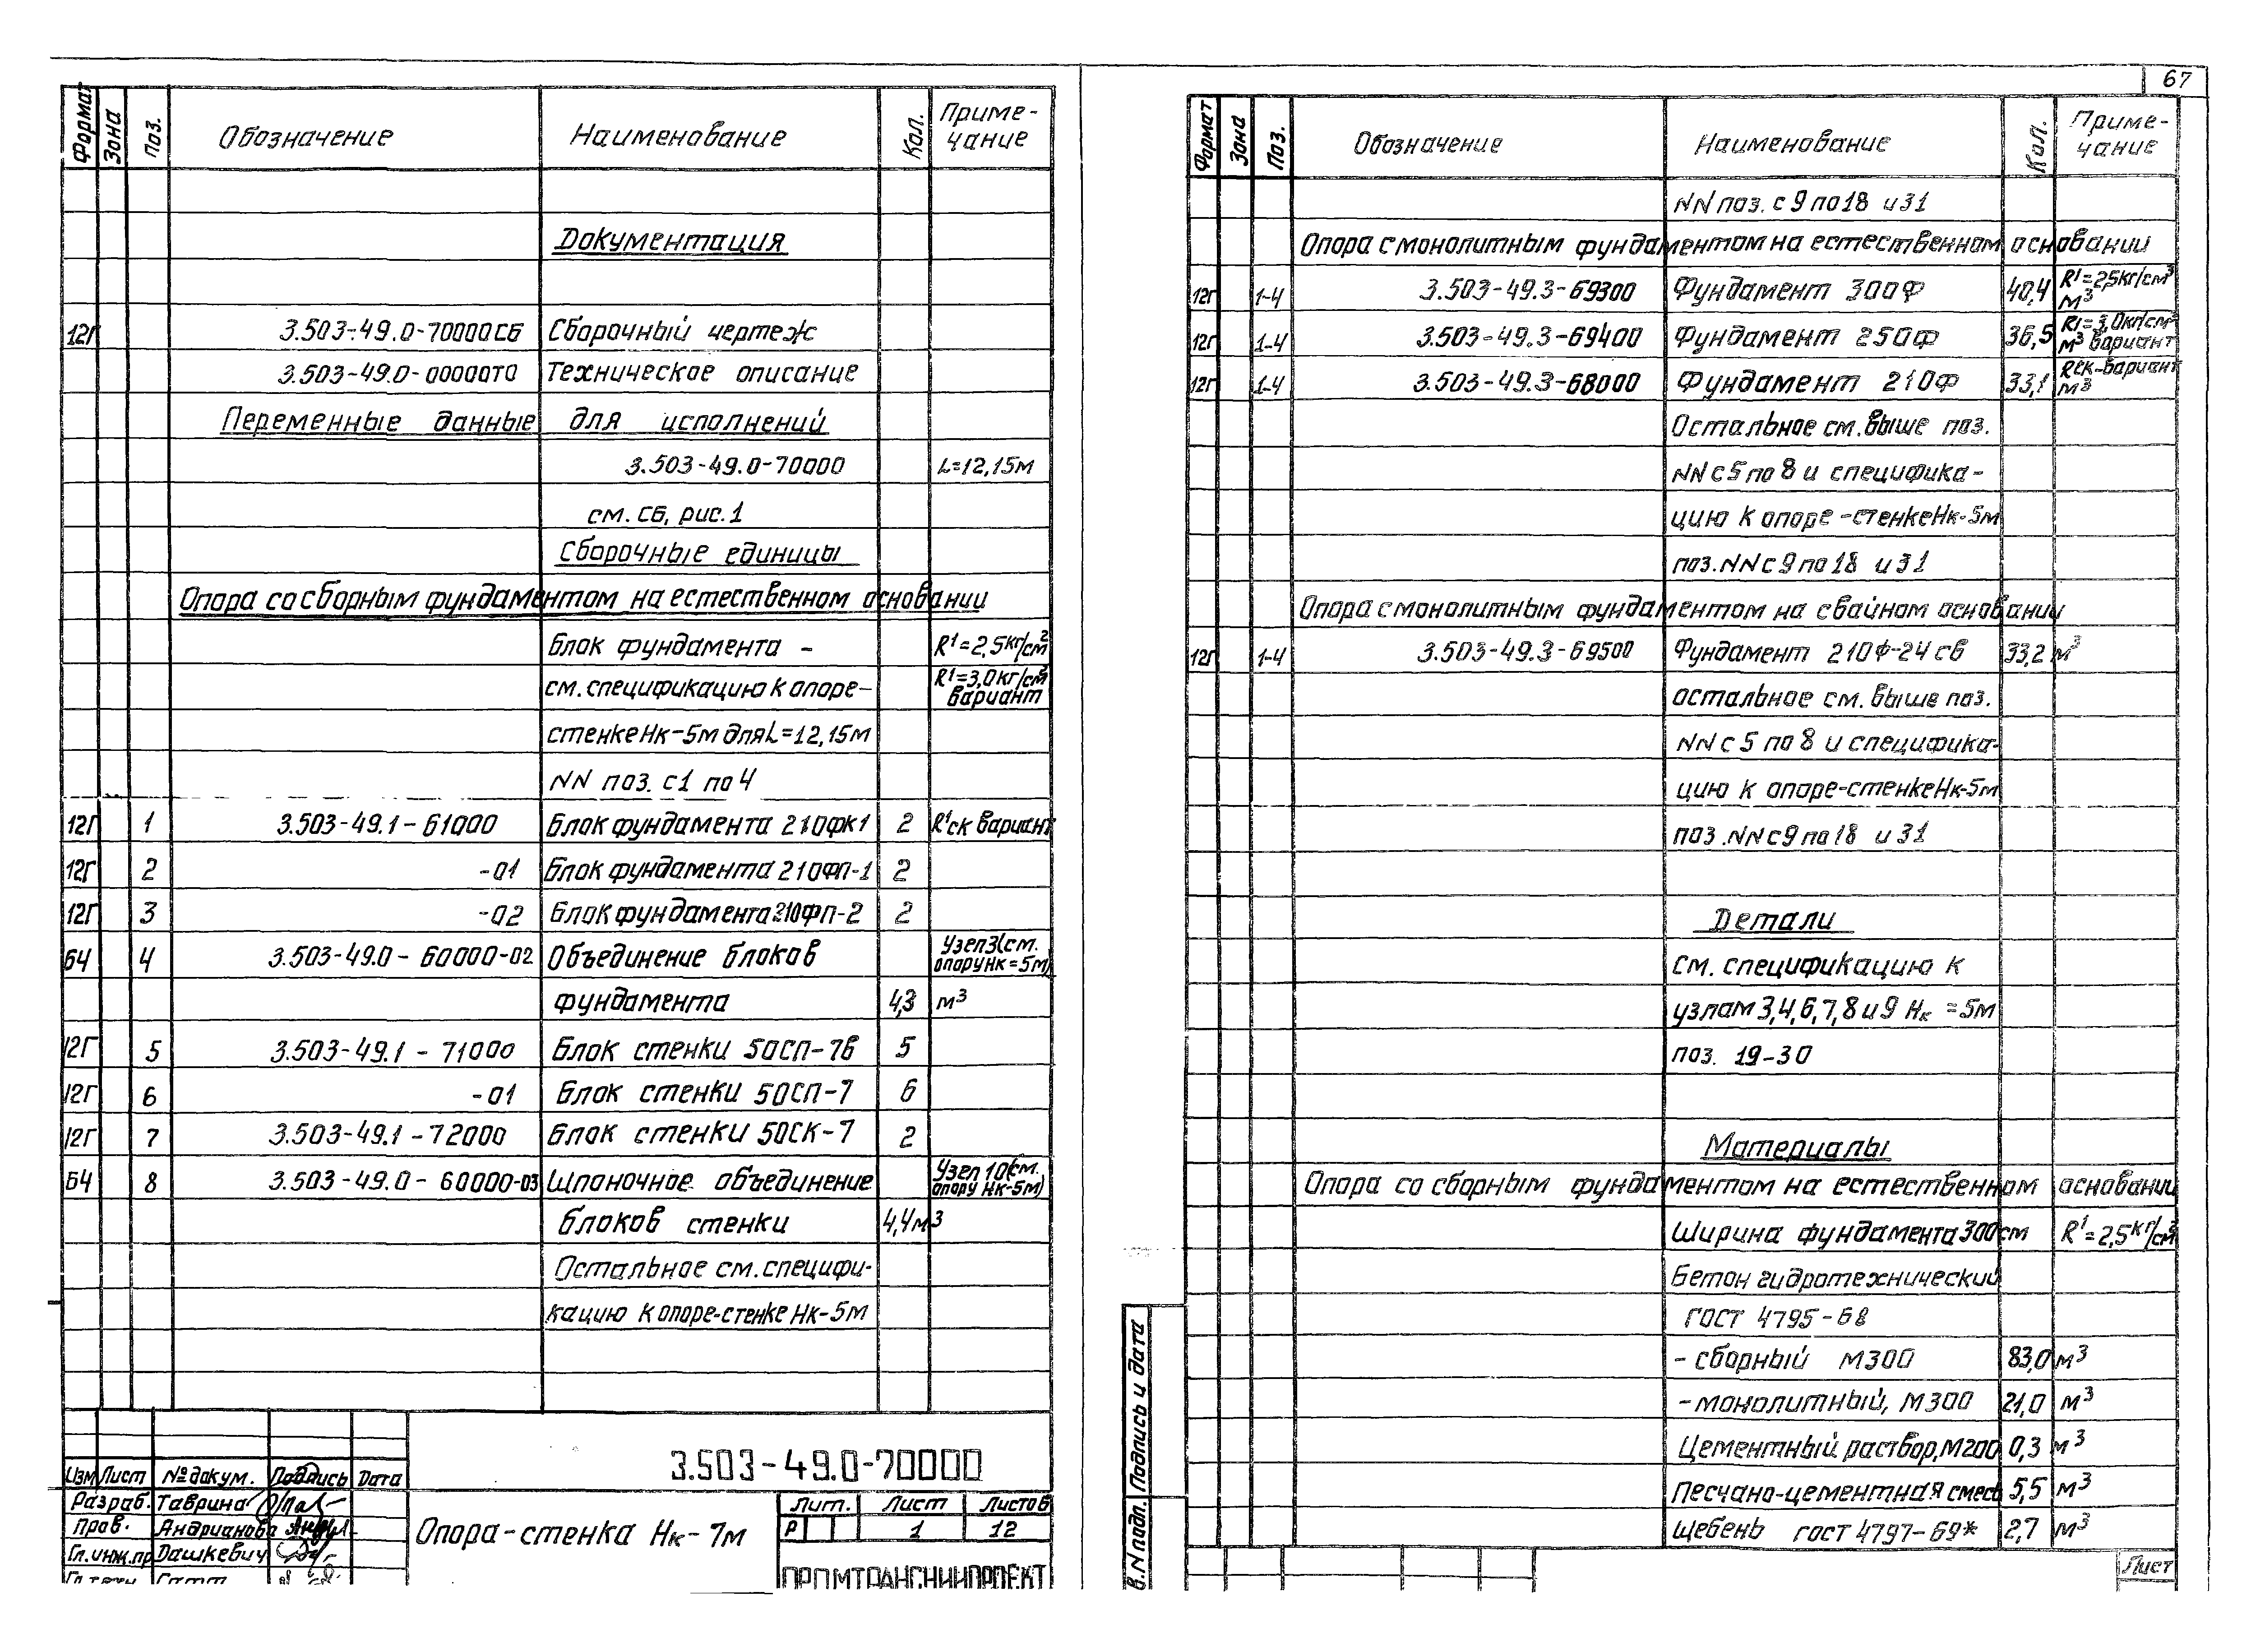 67
Формат Зона Поз. Обозначение Наименование Кол. Приме-
чание
Документация
12Г 3.503-49.0-70000СБ Сборочный чертеж
3.503-49.0-00000ТО Техническое описание
Переменные данные для исполнений
3.503-49.0-70000 L=12,15м
см. СБ, рис.1
Сборочные единицы
Опора со сборным фундаментом на естественном основании
Блок фундамента – R¹=2,5кг/см²
см. спецификацию к опоре– R¹=3,0кг/см²
вариант
стенке Нк-5м для L=12,15м
NN поз. с 1 по 4
12Г 1 3.503-49.1-61000 Блок фундамента 210ФК1 2 R¹ск вариант
12Г 2 -01 Блок фундамента 210ФП-1 2
12Г 3 -02 Блок фундамента 210ФП-2 2
БЧ 4 3.503-49.0-60000-02 Объединение блоков Узел3(см.
опору Нк=5м)
фундамента 4,3 м³
12Г 5 3.503-49.1-71000 Блок стенки 50СП-7в 5
12Г 6 -01 Блок стенки 50СП-7 6
12Г 7 3.503-49.1-72000 Блок стенки 50СК-7 2
БЧ 8 3.503-49.0-60000-03 Шпоночное объединение Узел 10(см.
опору Нк-5м)
блоков стенки 4,4м³
Остальное см. специфи-
кацию к опоре-стенке Нк-5м
3.503-49.0-70000
Изм Лист № докум. Подпись Дата
Разраб. Таврина
Пров. Андрианова
Гл.инж.пр Дашкевич
Опора-стенка Нк-7м
Лит. Лист Листов
Р 1 12
ПРОМТРАНСНИИПРОЕКТ
Формат Зона Поз. Обозначение Наименование Кол. Приме-
чание
NN поз. с 9 по 18 и 31
Опора с монолитным фундаментом на естественном основании
12Г 1-4 3.503-49.3-69300 Фундамент 300Ф 40,4 R¹=2,5кг/см²
м³
12Г 1-4 3.503-49.3-69400 Фундамент 250Ф 36,5 R¹=3,0кг/см²
м³ вариант
12Г 1-4 3.503-49.3-68000 Фундамент 210Ф 33,1 Rск-вариант
м³
Остальное см. выше поз.
NN с 5 по 8 и специфика-
цию к опоре-стенке Нк-5м
поз. NN с 9 по 18 и 31
Опора с монолитным фундаментом на свайном основании
12Г 1-4 3.503-49.3-69500 Фундамент 210Ф-24св 33,2 м³
остальное см. выше поз.
NN с 5 по 8 и специфика-
цию к опоре-стенке Нк-5м
поз. NN с 9 по 18 и 31
Детали
См. спецификацию к
узлам 3,4,6,7,8 и 9 Нк =5м
поз. 19-30
Материалы
Опора со сборным фундаментом на естественном основании
Ширина фундамента 300см R¹=2,5кг/см²
Бетон гидротехнический
ГОСТ 4795-68
- сборный М300 83,0 м³
- монолитный, М300 21,0 м³
Цементный раствор, М200 0,3 м³
Песчано-цементная смесь 5,5 м³
Щебень ГОСТ 4797-69* 2,7 м³
Подпись и дата
Лист